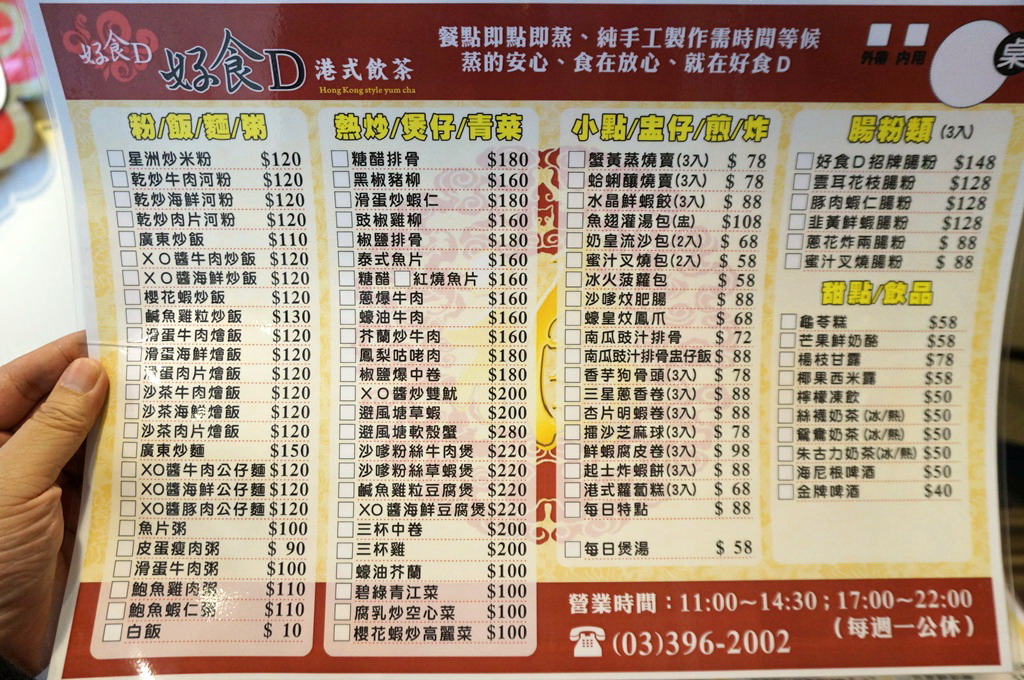 好食D
好食D 港式飲茶
Hong Kong style yum cha
餐點即點即蒸、純手工製作需時間等候
蒸的安心、食在放心、就在好食D
外帶 內用
桌
粉/飯/麵/粥
星洲炒米粉 $120
乾炒牛肉河粉 $120
乾炒海鮮河粉 $120
乾炒肉片河粉 $120
廣東炒飯 $110
XO醬牛肉炒飯 $120
XO醬海鮮炒飯 $120
櫻花蝦炒飯 $120
鹹魚雞粒炒飯 $130
滑蛋牛肉燴飯 $120
滑蛋海鮮燴飯 $120
滑蛋肉片燴飯 $120
沙茶牛肉燴飯 $120
沙茶海鮮燴飯 $120
沙茶肉片燴飯 $120
廣東炒麵 $150
XO醬牛肉公仔麵 $120
XO醬海鮮公仔麵 $120
XO醬豚肉公仔麵 $120
魚片粥 $100
皮蛋瘦肉粥 $ 90
滑蛋牛肉粥 $100
鮑魚雞肉粥 $110
鮑魚蝦仁粥 $110
白飯 $ 10
熱炒/煲仔/青菜
糖醋排骨 $180
黑椒豬柳 $160
滑蛋炒蝦仁 $180
豉椒雞柳 $160
椒鹽排骨 $180
泰式魚片 $160
糖醋 紅燒魚片 $160
蔥爆牛肉 $160
蠔油牛肉 $160
芥蘭炒牛肉 $160
鳳梨咕咾肉 $180
椒鹽爆中卷 $180
XO醬炒雙魷 $200
避風塘草蝦 $200
避風塘軟殼蟹 $280
沙嗲粉絲牛肉煲 $220
沙嗲粉絲草蝦煲 $220
鹹魚雞粒豆腐煲 $220
XO醬海鮮豆腐煲 $220
三杯中卷 $200
三杯雞 $200
蠔油芥蘭 $100
碧綠青江菜 $100
腐乳炒空心菜 $100
櫻花蝦炒高麗菜 $100
小點/盅仔/煎/炸
蟹黃蒸燒賣(3入) $ 78
蛤蜊釀燒賣(3入) $ 78
水晶鮮蝦餃(3入) $ 88
魚翅灌湯包(盅) $108
奶皇流沙包(2入) $ 68
蜜汁叉燒包(2入) $ 58
冰火菠蘿包 $ 58
沙嗲炆肥腸 $ 88
蠔皇炆鳳爪 $ 68
南瓜豉汁排骨 $ 72
南瓜豉汁排骨盅仔飯 $ 88
香芋狗骨頭(3入) $ 78
三星蔥香卷(3入) $ 88
杏片明蝦卷(3入) $ 88
擂沙芝麻球(3入) $ 78
鮮蝦腐皮卷(3入) $ 98
起士炸蝦餅(3入) $ 88
港式蘿蔔糕(3入) $ 68
每日特點 $ 88
每日煲湯 $ 58
腸粉類(3入)
好食D招牌腸粉 $148
雲耳花枝腸粉 $128
豚肉蝦仁腸粉 $128
韭黃鮮蝦腸粉 $128
蔥花炸兩腸粉 $ 88
蜜汁叉燒腸粉 $ 88
甜點/飲品
龜苓糕 $58
芒果鮮奶酪 $58
楊枝甘露 $78
椰果西米露 $58
檸檬凍飲 $50
絲襪奶茶(冰/熱) $50
鴛鴦奶茶(冰/熱) $50
朱古力奶茶(冰/熱) $50
海尼根啤酒 $50
金牌啤酒 $40
營業時間：11:00~14:30；17:00~22:00
(每週一公休)
(03)396-2002